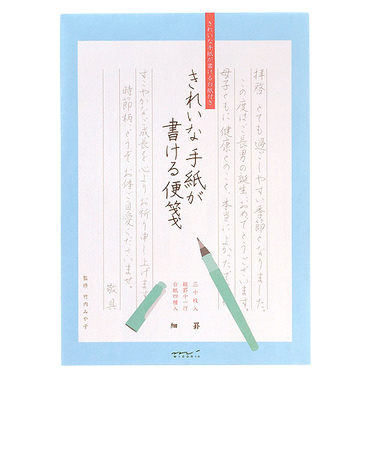 きれいな手紙が書ける台紙付き
拝啓 とても過ごしやすい季節となりました。
この度はご長男の誕生、おめでとうございます。
母子ともに健康とのこと、本当によかったで
きれいな手紙が
書ける便箋
すこやかなご成長を心よりお祈り申し上げます
時節柄、どうぞお体ご自愛くださいませ。
敬具
監修 竹内みや子
三十枚入
縦罫十一行
台紙四種入
細罫
MIDORI